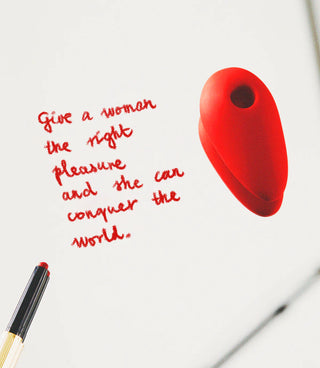 Give a woman
the right
pleasure
and she can
conquer the
world.